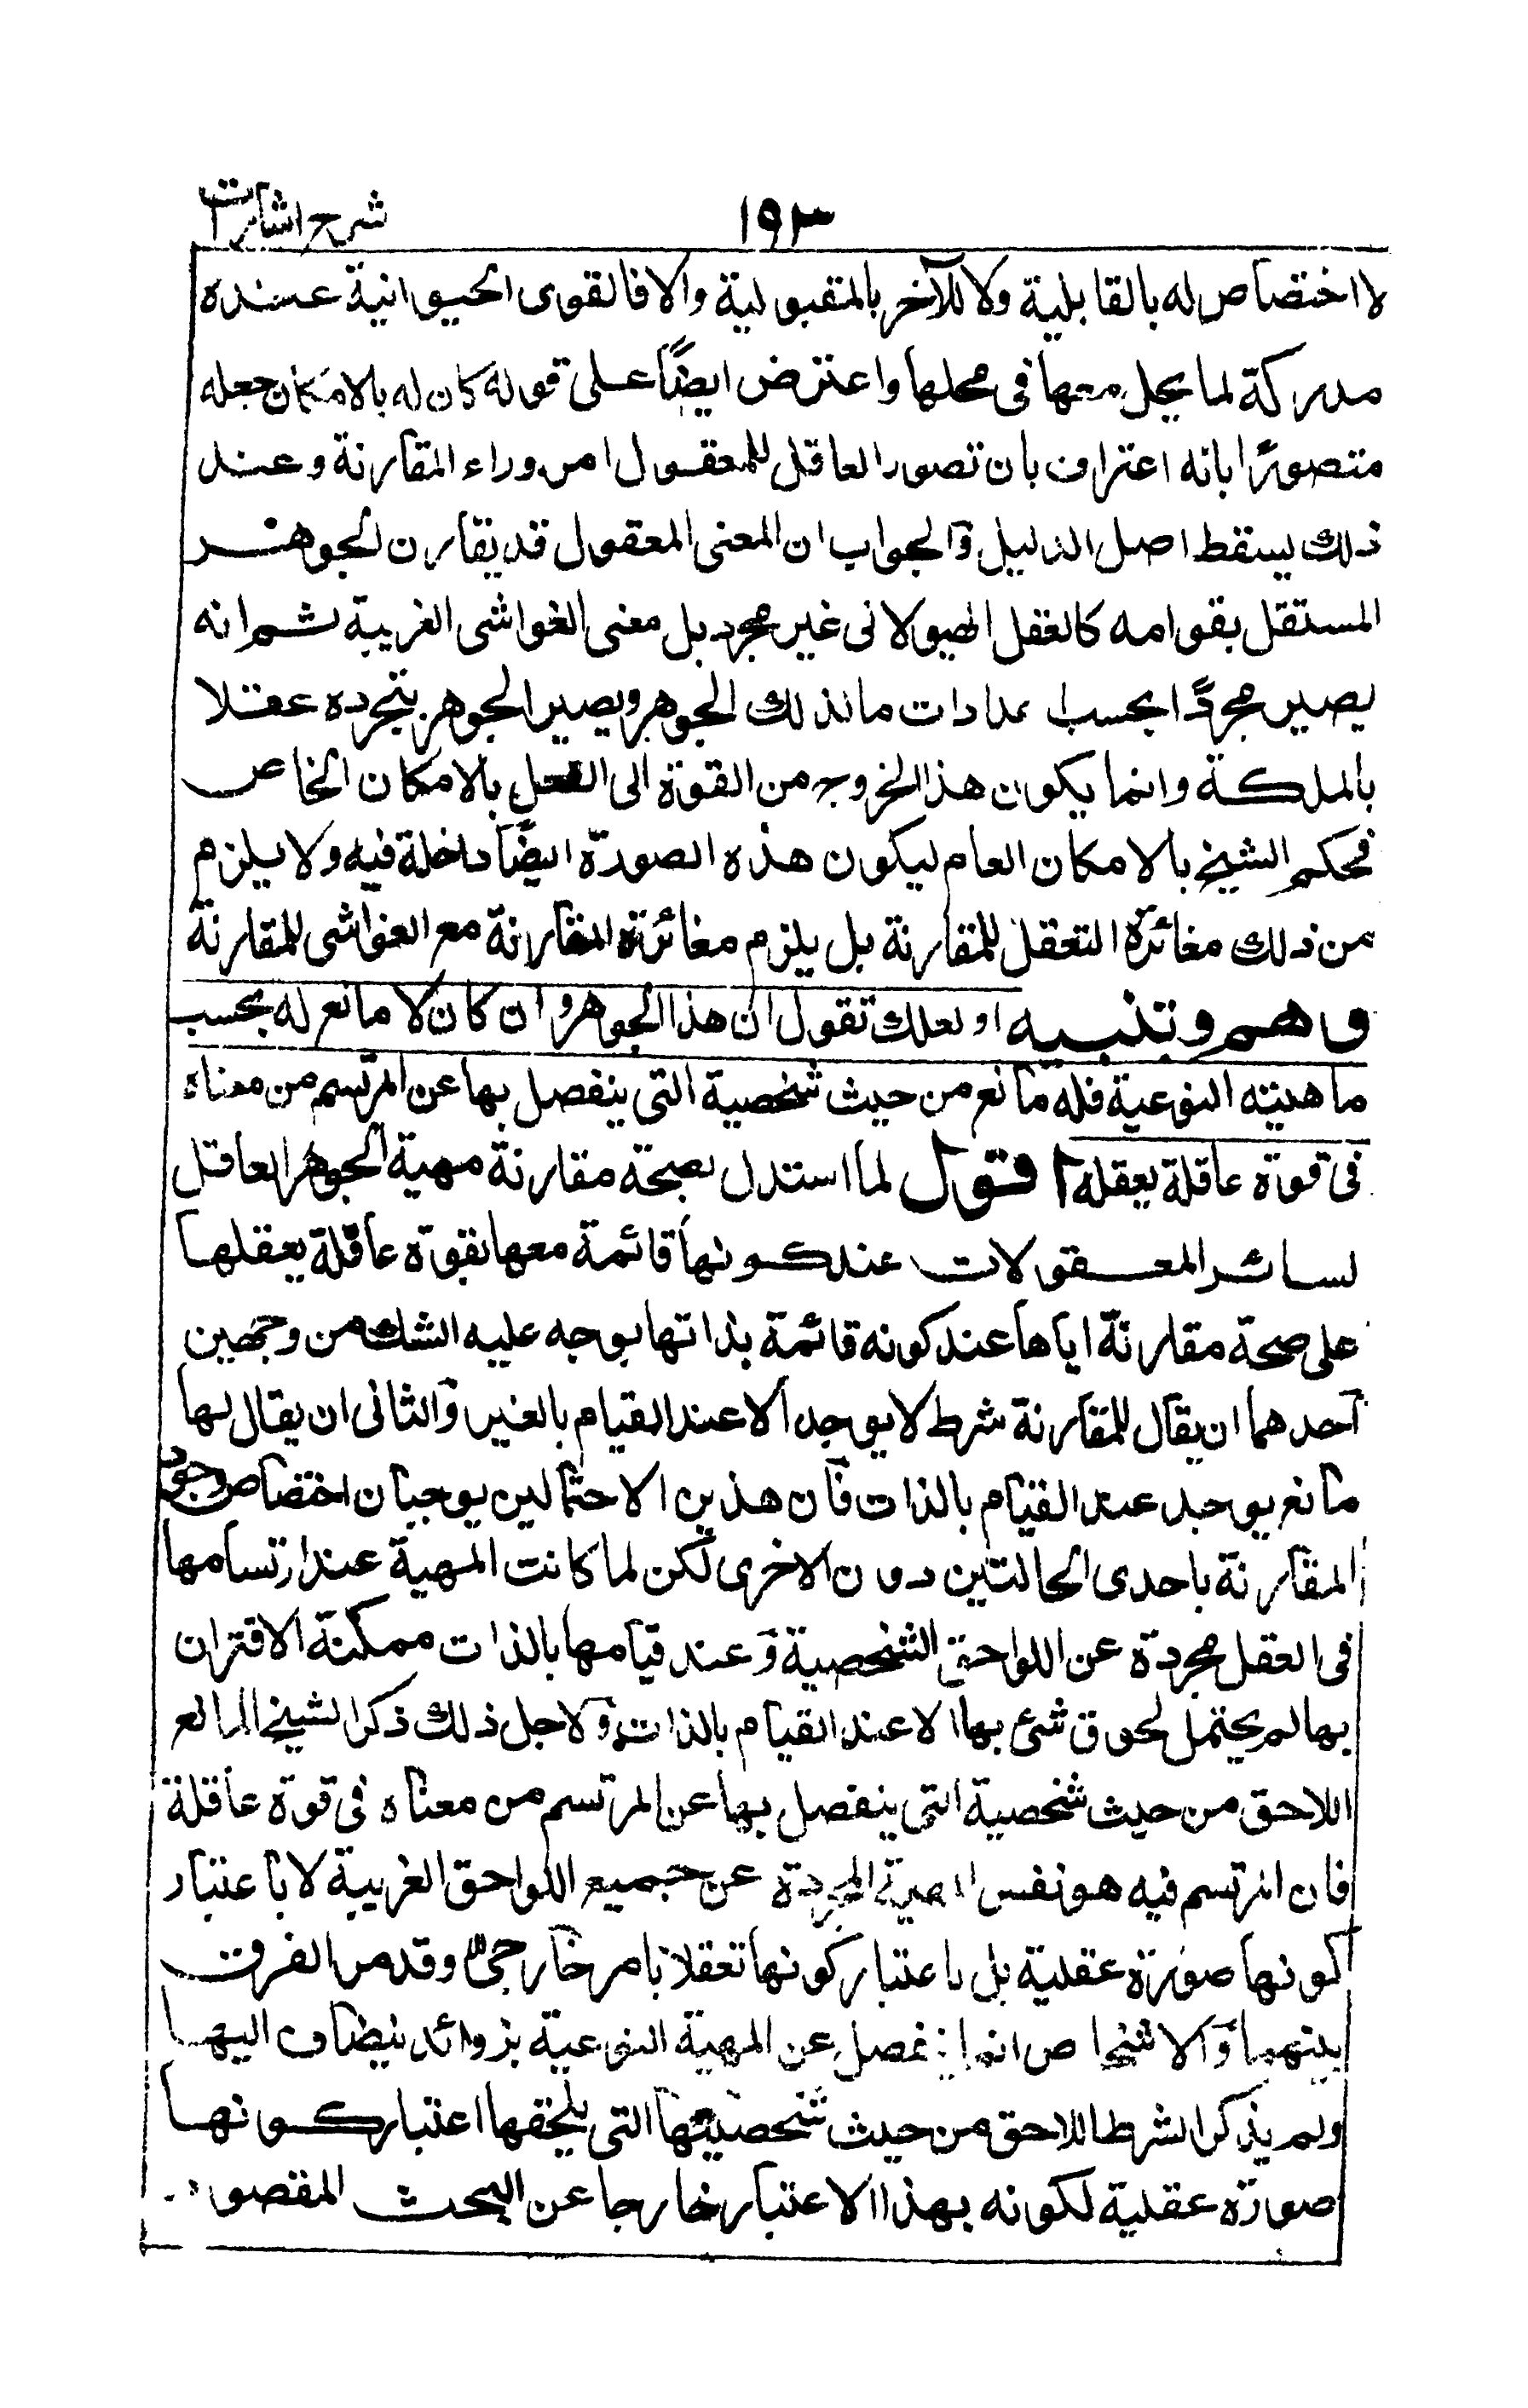 شرح اشارات
١٩٣
لا اختصاص له بالقابلية ولا للآخر بالمقبولية والا فالقوى الحيوانية عنده
مدركة لما يحل معها فى محلها واعترض ايضًا على قوله كان له بالامكان جعله
متصورًا بانه اعتراف بان تصور العاقل للمعقول امر وراء المقارنة وعند
ذلك يسقط اصل الدليل والجواب ان المعنى المعقول قد يقارن الجوهر
المستقل بقوامه كالعقل الهيولانى غير مجرد بل معنى الغواشى الغريبة ثم انه
يصير مجردًا بحسب استعدادات ما لذلك الجوهر ويصير الجوهر بتجرده عقلا
بالملكة وانما يكون هذا الخروج من القوة الى الفعل بالامكان الخاص
فحكم الشيخ بالامكان العام ليكون هذه الصورة ايضًا داخلة فيه ولا يلزم
من ذلك مغائرة التعقل للمقارنة بل يلزم مغائرة المقارنة مع الغواشى للمقارنة
وهم وتنبيه او لعلك تقول ان هذا الجوهر وان كان لا مانع له بحسب
ماهيته النوعية فله مانع من حيث شخصية التى ينفصل بها عن المرتسم من معناه
فى قوة عاقلة يعقله اقول لما استدل بصحة مقارنة مهية الجوهر العاقل
لسائر المعقولات عند كونها قائمة معها بقوة عاقلة يعقلها
على صحة مقارنة اياها عند كونه قائمة بذاتها يوجه عليه الشك من وجهين
احدهما ان يقال للمقارنة شرط لا يوجد الا عند القيام بالغير والثانى ان يقال لها
مانع يوجد عند القيام بالذات فان هذين الاحتمالين يوجبان اختصاص وجود
المقارنة باحدى الحالتين دون الاخرى لكن لما كانت المهية عند ارتسامها
فى العقل مجردة عن اللواحق الشخصية وعند قيامها بالذات ممكنة الاقتران
بها لم يحتمل لحوق شئ بها الا عند القيام بالذات ولاجل ذلك ذكر الشيخ المانع
اللاحق من حيث شخصية التى ينفصل بها عن المرتسم من معناه فى قوة عاقلة
فان المرتسم فيه هو نفس المهية المجردة عن جميع اللواحق الغريبة لا باعتبار
كونها صورة عقلية بل باعتبار كونها تعقلا بامر خارجى وقد مر الفرق
بينهما والاشخاص انما ينفصل عن المهية النوعية بزوائد ينضاف اليها
ولم يذكر الشرط اللاحق من حيث شخصيتها التى يلحقها اعتبار كونها
صورة عقلية لكونه بهذا الاعتبار خارجا عن البحث المقصود